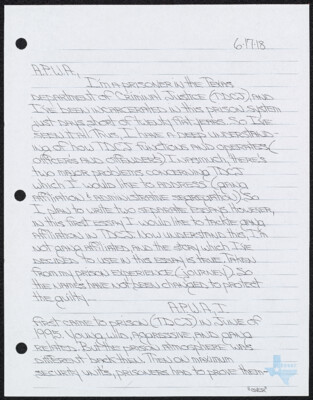 6-17-18
A.P.W.A.,
I'm a prisoner in the Texas
Department of Criminal Justice (TDCJ), and
I've been incarcerated in this prison system
just days short of twenty first years. So I've
seen it all. Thus, I have a deep understand-
ing of how TDCJ functions and operates (
officers and offenders). Inasmuch, there's
two major problems concerning TDCJ
which I would like to address (gang
affiliation / administrative segregation). So
I plan to write two separate essays. However,
in this first essay I would like to tackle gang
affiliation in TDCJ. Now understand this, I'm
not gang affiliated, and the story which I've
decided to use in this essay is true. Taken
from my prison experience (journey). So
the names have not been changed to protect
the guilty.
A.P.W.A. I.
first came to prison (TDCJ) in June of
1995. Young, wild, aggressive, and gang
related. But the prison atmosphere was
different back then. Then on maximum
security units, prisoners had to prove them-